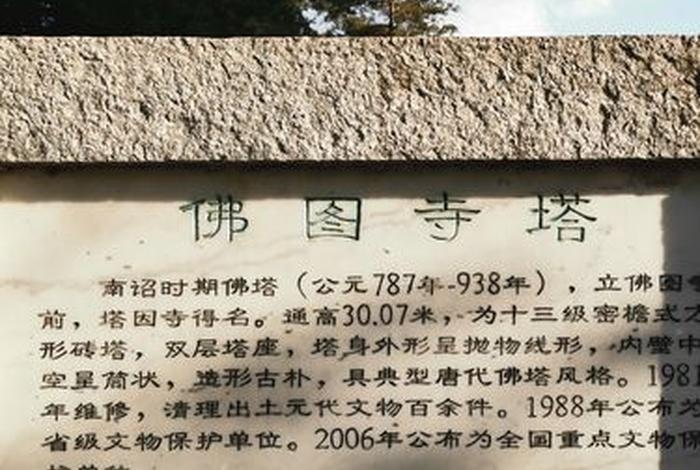 佛图寺塔
南诏时期佛塔（公元787年-938年），立佛图寺
前，塔因寺得名。通高30.07米，为十三级密檐式方
形砖塔，双层塔座，塔身外形呈抛物线形，内壁中
空呈筒状，造形古朴，具典型唐代佛塔风格。1981
年维修，清理出土元代文物百余件。1988年公布为
省级文物保护单位。2006年公布为全国重点文物保